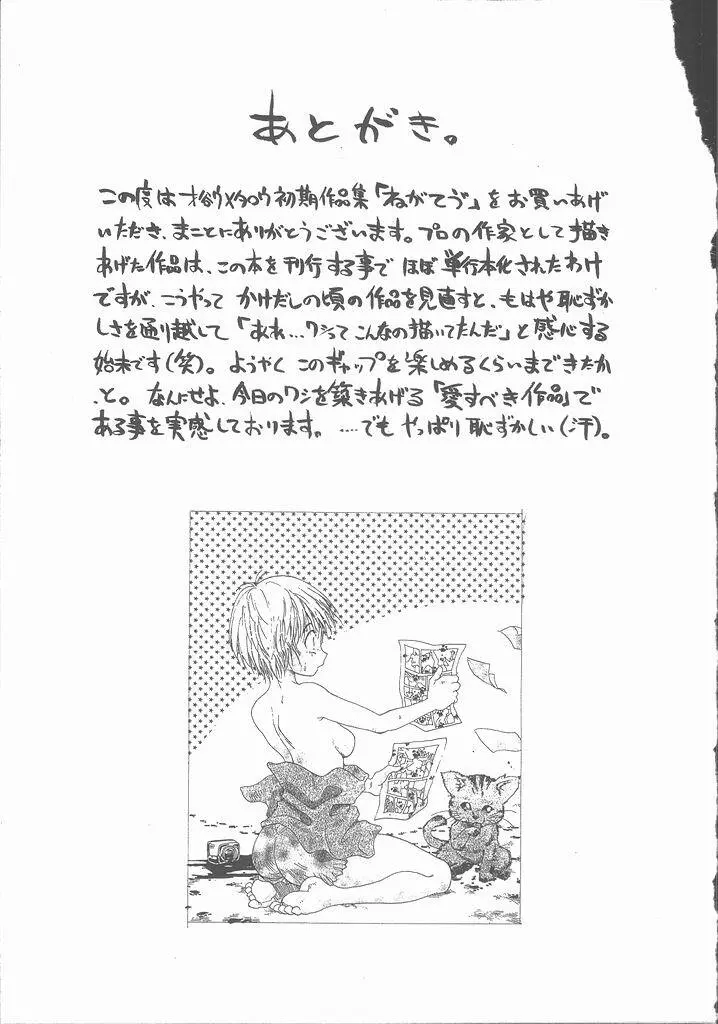 あとがき。
この度は才谷ウメタロウ初期作品集「ねがてぃう゛」をお買いあげ
いただき、まことにありがとうございます。プロの作家として描き
あげた作品は、この本を刊行する事でほぼ単行本化されたわけ
ですが、こうやってかけだしの頃の作品を見直すと、もはや恥ずか
しさを通り越して「あれ…ワシってこんなの描いてたんだ」と感心する
始末です(笑)。ようやくこのギャップを楽しめるくらいまできたか
、と。なんにせよ、今日のワシを築きあげる「愛すべき作品」で
ある事を実感しております。…‥でもやっぱり恥ずかしい(汗)。